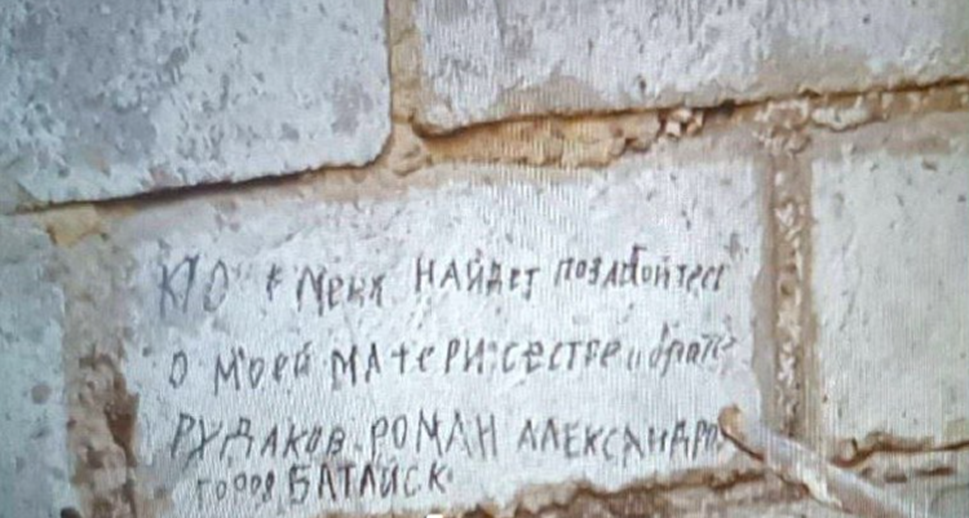 КТО меня НАЙДЕТ позаботтесь
о моей МАТЕРИ, сестре и брате
РУДАКОВ РОМАН АЛЕКСАНДРО
город БАТАЙСК